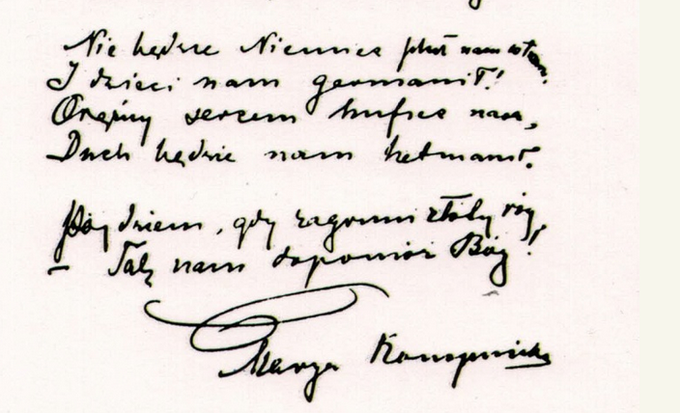 Nie będzie Niemiec pluł nam w twarz
I dzieci nam germanił!
Orężny sercem hufiec nasz,
Duch będzie nam hetmanił.
Pójdziem, gdy zagrzmi złoty róg!
– Tak nam dopomóż Bóg!
Marya Konopnicka